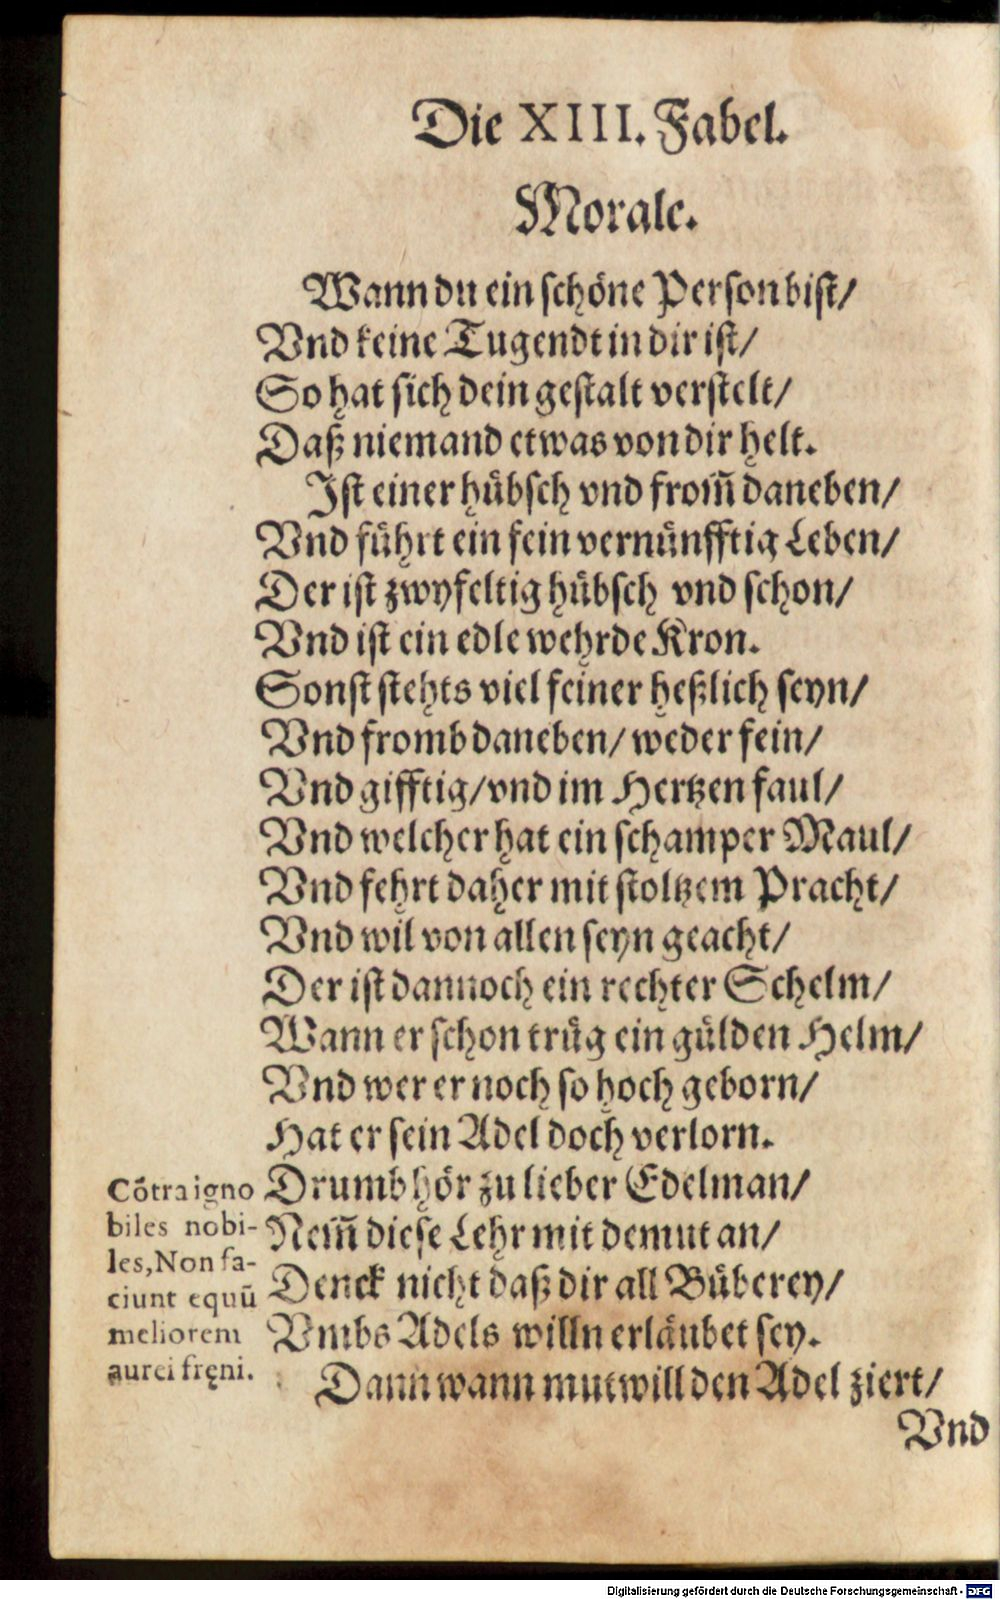 Die XIII. Fabel.
Morale.
Wann du ein schöne Person bist/
Vnd keine Tugendt in dir ist/
So hat sich dein gestalt verstelt/
Daß niemand etwas von dir helt.
Ist einer hübsch vnd from̃ daneben/
Vnd führt ein fein vernünfftig Leben/
Der ist zwyfeltig hübsch vnd schon/
Vnd ist ein edle wehrde Kron.
Sonst stehts viel feiner heßlich seyn/
Vnd fromb daneben/ weder fein/
Vnd gifftig/ vnd im Hertzen faul/
Vnd welcher hat ein schamper Maul/
Vnd fehrt daher mit stoltzem Pracht/
Vnd wil von allen seyn geacht/
Der ist dannoch ein rechter Schelm/
Wann er schon trüg ein gülden Helm/
Vnd wer er noch so hoch geborn/
Hat er sein Adel doch verlorn.
Drumb hör zu lieber Edelman/
Nem̃ diese Lehr mit demut an/
Denck nicht daß dir all Büberey/
Vmbs Adels willn erläubet sey.
Dann wann mutwill den Adel ziert/
Vnd
Cõtra igno
biles nobi-
les, Non fa-
ciunt equũ
meliorem
aurei fręni.
Digitalisierung gefördert durch die Deutsche Forschungsgemeinschaft - DFG